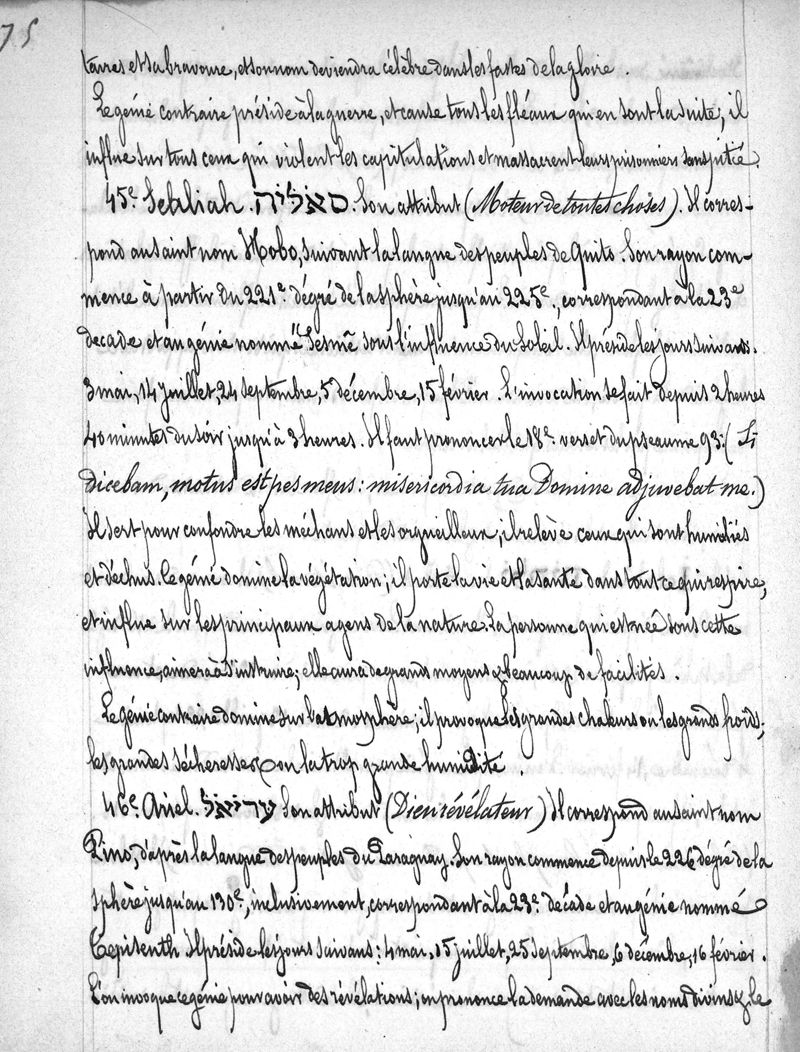 75
taires et sa bravoure, et son nom deviendra célèbre dans les fastes de la gloire.
Le génie contraire préside à la guerre, et cause tous les fléaux qui en sont la suite; il
influe sur tous ceux qui violent les capitulations et massacrent leurs prisonniers sans pitié.
45e. Sealiah. סאליה. Son attribut (Moteur de toutes choses). Il corres-
pond au saint nom Hobo, suivant la langue des peuples de Quito. Son rayon com-
mence à partir du 221e. dégré de la sphère jusqu'au 225e., correspondant à la 23e
decade et au génie nommé Sesmē sous l'influence du Soleil. Il préside les jours suivans.
3 mai, 14 juillet, 24 septembre, 5 décembre, 15 février. L'invocation se fait depuis 2 heures
40 minutes du soir jusqu'à 3 heures. Il faut prononcer le 18e. verset du pseaume 93: (Si
dicebam, motus est pes meus: misericordia tua Domine adjuvebat me.)
Il sert pour confondre les méchans et les orgueilleux; il relève ceux qui sont humiliés
et déchus. Ce génie domine la végétation; il porte la vie et la santé dans tout ce qui respire,
et influe sur les principaux agens de la nature. La personne qui est née sous cette
influence, aimera à s'instruire; elle aura de grands moyens & beaucoup de facilités.
Le génie contraire domine sur l'atmosphère; il provoque les grandes chaleurs ou les grands froids;
les grandes sécheresses ou la trop grande humidité.
46e. Ariel. עריאל Son attribut (Dieu révélateur) Il correspond au saint nom
Pino, d'après la langue des peuples du Paraguay. Son rayon commence depuis le 226 dégré de la
sphère jusqu'au 130e., inclusivement, correspondant à la 23e. décade et au génie nommé
Tepisenth Il préside les jours suivans: 4 mai, 15 juillet, 25 septembre, 6 décembre, 16 février.
L'on invoque ce génie pour avoir des révélations; on prononce la demande avec les noms divins & le